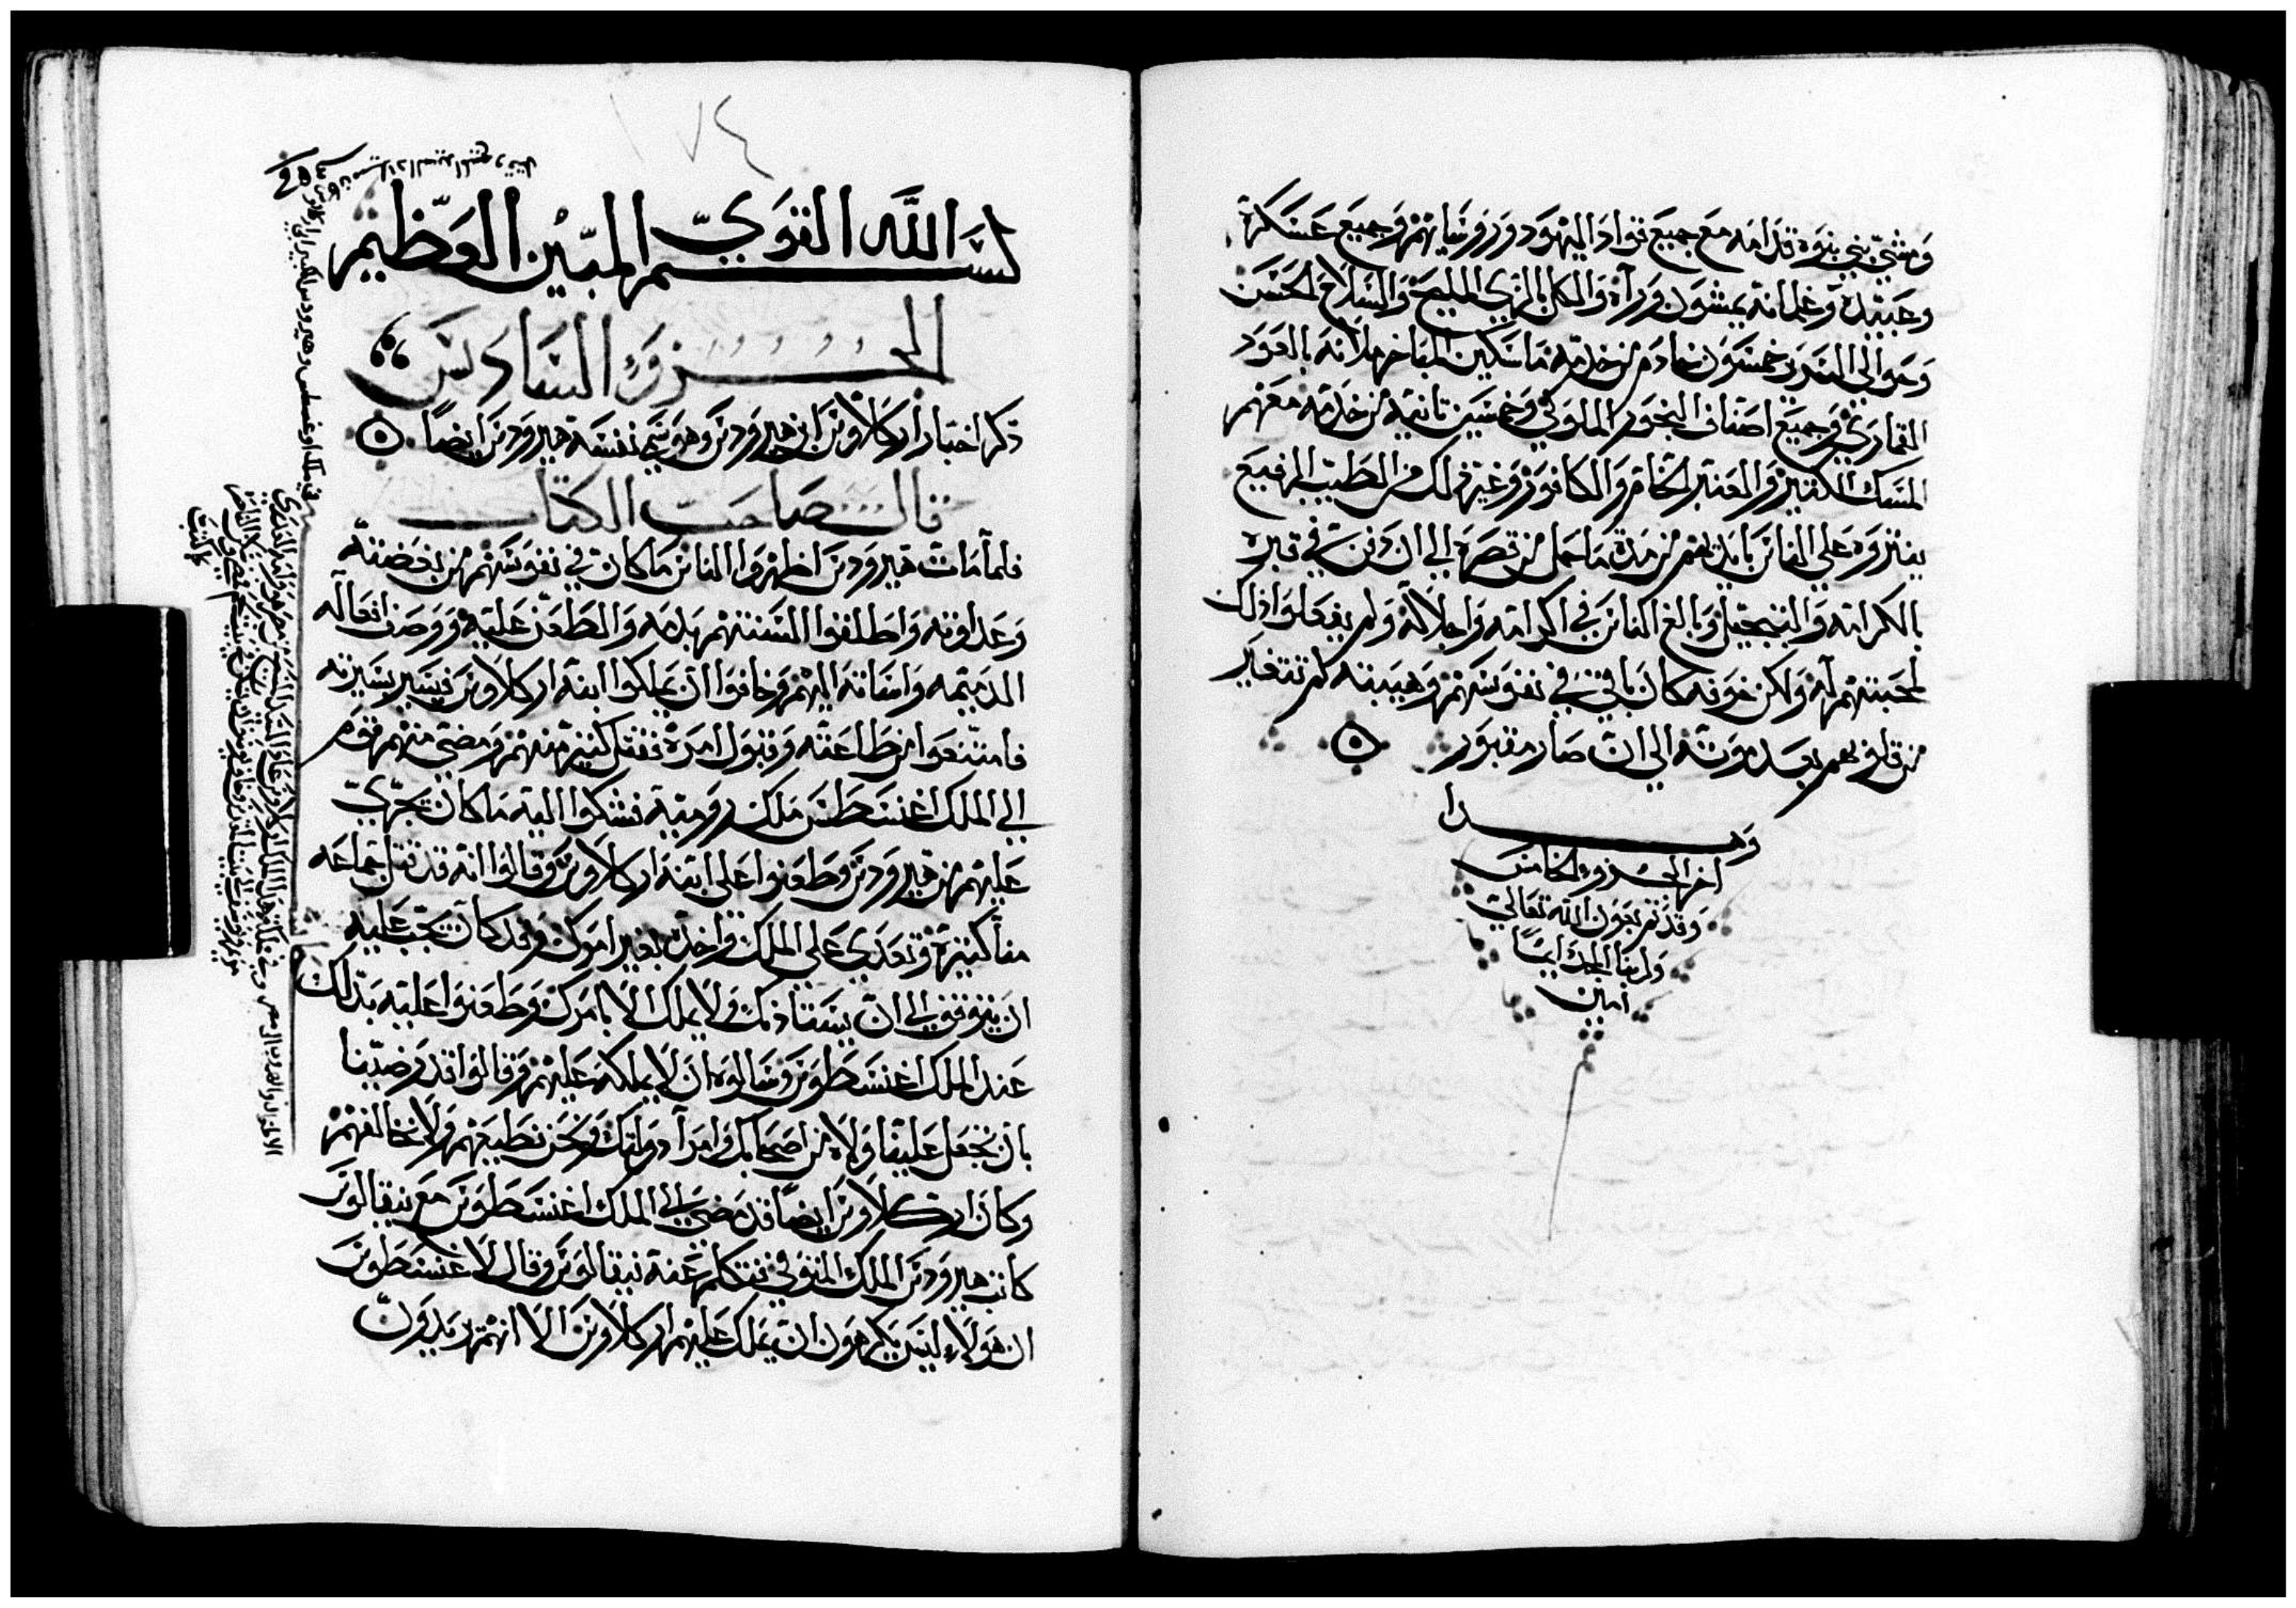 ومشي بني بنوه قدامه مع جميع قواد اليهود وروسايهم وجميع عسكره
وعبيده وغلمانه يمشون وراه والكل بالزي المليح والسلاح الحسن
وحوالي السرير خمسون خادم من خدمه ماسكين المباخر ملانه بالعود
القماري وجميع اصناف البخور الملوكي وخمسين تانيه من خدمه معهم
المسك الكثير والعنبر الخام والكافور وغير ذلك من الطيب الرفيع
ينثروه علي الناس بايديهم من مدة ما حمل من قصره الي ان دفن في قبره
بالكرامه والتبجيل وبالغ الناس في اكرامه واجلاله ولم يفعلوا ذلك
لمحبتهم له ولكن خوفه كان باقي في نفوسهم وهيبته لم تتغير
من قلوبهم بعد موته الي ان صار مقبور
وهدا
اخر الجزوء الخامس
وقد تم بعون الله تعالي
ولربنا المجد ابدا
امين
١٧٤
بسم الله القوي المبين العظيم
الجزوء السادس
ذكر اخبار اركلاوس ابن هيرودس وهو سمي نفسه هيرودس ايضا
قال صاحب الكتاب
فلما مات هيرودس اظهروا الناس ما كان في نفوسهم من بغضته
وعداوته واطلقوا السنتهم بذمه والطعن عليه ووصف افعاله
الدميمه واساته اليهم وخافوا ان يملكوا ابنه اركلاوس فيسير بسيرته
فامتنعوا من طاعته وقبول امره فقتل كثير منهم ومضي منهم قوم
الي الملك اغسطس ملك رومية فشكوا اليه ما كان يجري
عليهم من هيرودس وطعنوا علي ابنه اركلاوس وقالوا انه قد قتل جماعه
منا كثيرة وتعدي علي الملك واخده بغير امرك وقد كان يجب عليه
ان يتوقف الي ان يستاذنك ولا يملك الا بامرك وطعنوا عليه بذلك
عند الملك اغسطوس وسالوه ان لا يملكه عليهم وقالوا قد رضينا
بان تجعل علينا ولاه من اصحابك وامرآ دولتك ونحن نطيعهم ولا نخالفهم
وكان اركلاوس ايضا قد مضي الي الملك اغسطوس مع نيقالوس
كاتب هيرودس الملك المتوفي فتكلم عنه نيقالوس وقال لاغسطوس
ان هولاء ليس يكرهون ان يملك عليهم اركلاوس الا انهم يريدون